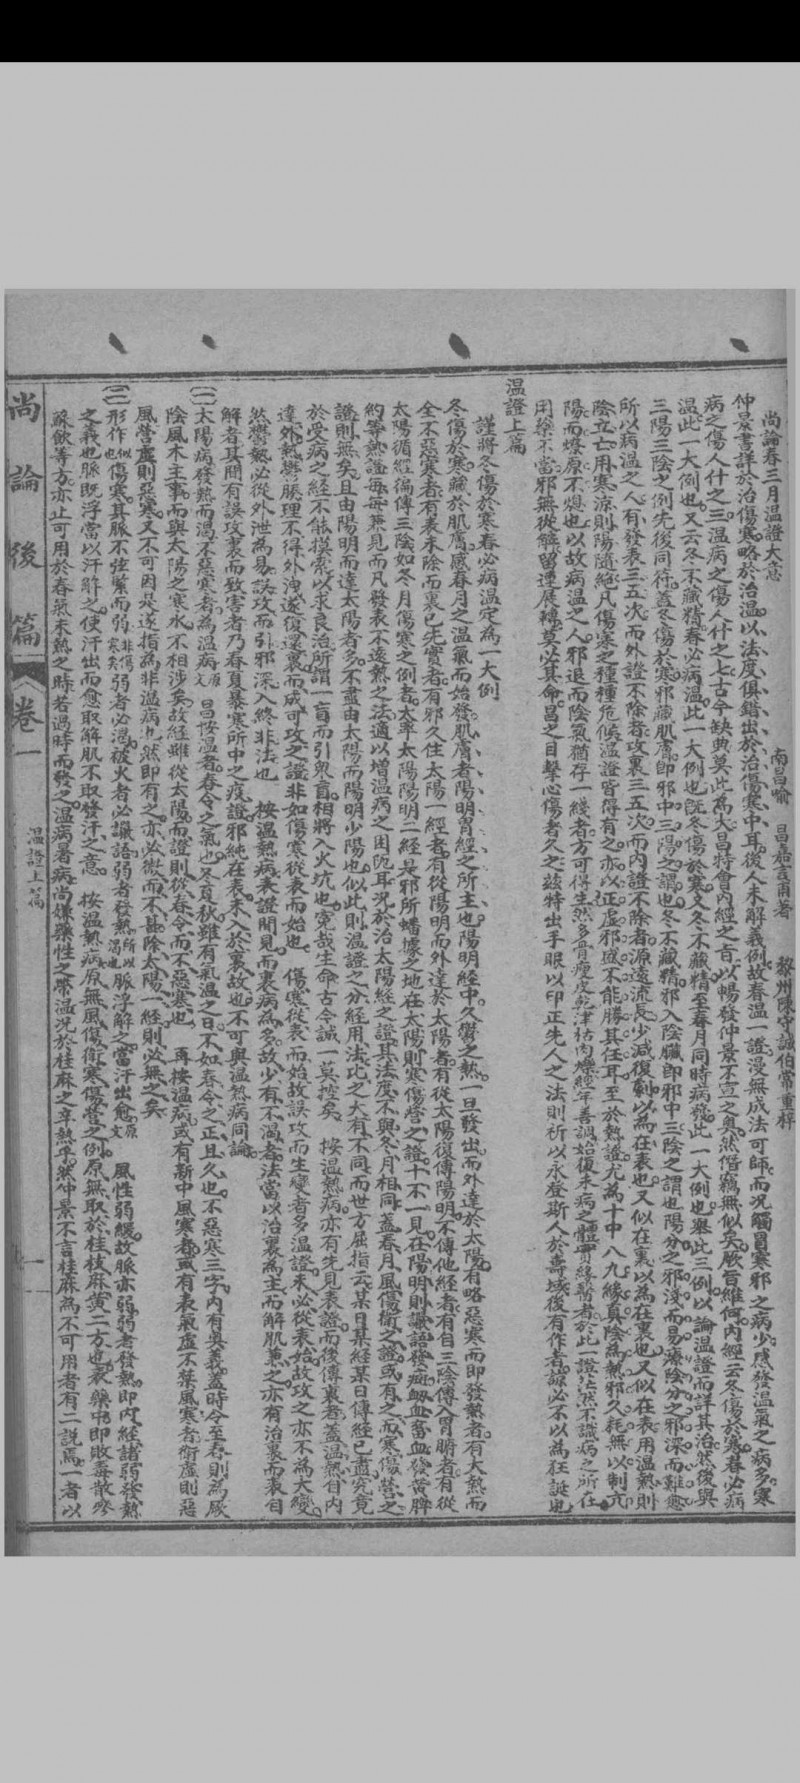 尚論春三月温證大意
南昌喻　昌嘉言甫著　黎川陳守誠伯常重梓
仲景書詳於治傷寒略於治温以法度俱錯出於治傷寒中耳後人未解義例故春温一證漫無成法可師而况觸冒寒邪之病少感發温氣之病多寒
病之傷人什之三温病之傷人什之七古今缺典莫此為大昌特會內經之旨以暢發仲景不宣之奥然僭竊無似矣厥旨維何內經云冬傷於寒春必病
温此一大例也又云冬不藏精春必病温此一大例也既冬傷於寒又冬不藏精至春月同時病發此一大例也舉此三例以論温證而詳其治然後與
三陽三陰之例先後同符蓋冬傷於寒邪藏肌膚卽邪中三陽之謂也冬不藏精邪入陰臟卽邪中三陰之謂也陽分之邪淺而易療陰分之邪深而難愈
所以病温之人有發表三五次而外證不除者攻裏三五次而內證不除者源遠流長少減復劇以為在表也又似在裏以為在裏也又似在表用温熱則
陰立亡用寒涼則陽隨絕凡傷寒之種種危候温證皆得有之亦以正虛邪盛不能勝其任耳至於熱證尤為十中八九緣真陰為熱邪久耗無以制亢
陽而燎原不熄也以故病温之人邪退而陰氣猶存一綫者方可得生然多骨瘦皮乾津枯肉爍經年善調始復未病之體實緣醫者於此一證茫然不識病之所在
用藥不當邪無從解留連展轉莫必其命昌之目擊心傷者久之茲特出手眼以印正先人之法則祈以永登斯人於壽域後有作者諒必不以為狂誕也
温證上篇
謹將冬傷於寒春必病温定為一大例
冬傷於寒藏於肌膚感春月之温氣而始發肌膚者陽明胃經之所主也陽明經中久鬱之熱一旦發出而外達於太陽有略惡寒而卽發熱者有大熱而
全不惡寒者有表未除而裏已先實者有邪久住太陽一經者有從陽明而外達於太陽者有從太陽復傳陽明不傳他經者有自三陰傳入胃腑者有從
太陽循經徧傳三陰如冬月傷寒之例者大率太陽陽明二經是邪所蟠據之地在太陽則寒傷營之證十不一見在陽明則譫語發斑衄血畜血發黄脾
約等熱證每每兼見而凡發表不遠熱之法適以增温病之困阨耳况於治太陽經之證其法度不與冬月相同蓋春月風傷衛之證或有之而寒傷營之
證則無矣且由陽明而達太陽者多不盡由太陽而陽明少陽也似此則温證之分經用法比之大有不同而世方屈指云某日某經某日傳經已盡究竟
於受病之經不能摸索以求良治所謂一盲而引衆盲相將入火坑也寃哉生命古今誠一莫控矣　按温熱病亦有先見表證而後傳裏者蓋温熱自內
達外熱鬱腠理不得外洩遂復還裏而成可攻之證非如傷寒從表而始也　傷寒從表而始故誤攻而生變者多温證未必從表始故攻之亦不為大變
然鬱熱必從外泄為易誤攻而引邪深入終非法也　按温熱病表證間見而裏病為多故少有不渴者法當以治裏為主而解肌兼之亦有治裏而表自
解者其間有誤攻裏而致害者乃春夏暴寒所中之疫證邪純在表未入於裏故也不可與温熱病同論
(一)太陽病發熱而渴不惡寒者為温病原文　昌按温者春令之氣也冬夏秋雖有氣温之日不如春令之正且久也不惡寒三字內有奥義蓋時令至春則為厥
陰風木主事而與太陽之寒水不相涉矣故經雖從太陽而證則從春令而不惡寒也　再按温病或有新中風寒者或有表氣虛不禁風寒者衛虛則惡
風營虛則惡寒又不可因是遂指為非温病也然即有之亦必微而不甚除太陽一經則必無之矣
(二)形作似也傷寒其脈不弦緊而弱非傷寒矣弱者必渴被火者必譫語弱者發熱所以渴也脈浮解之當汗出愈原文　風性弱緩故脈亦弱弱者發熱卽內經諸弱發熱
之義也脈既浮當以汗解之使汗出而愈取解肌不取發汗之意　按温熱病原無風傷衛寒傷營之例原無取於桂枝麻黄二方也表藥中卽敗毒散參
蘇飲等方亦止可用於春氣未熱之時若過時而發之温病暑病尚嫌藥性之帶温况於桂麻之辛熱乎然仲景不言桂麻為不可用者有二說焉一者以
尚論後篇
卷一
温證上篇
一